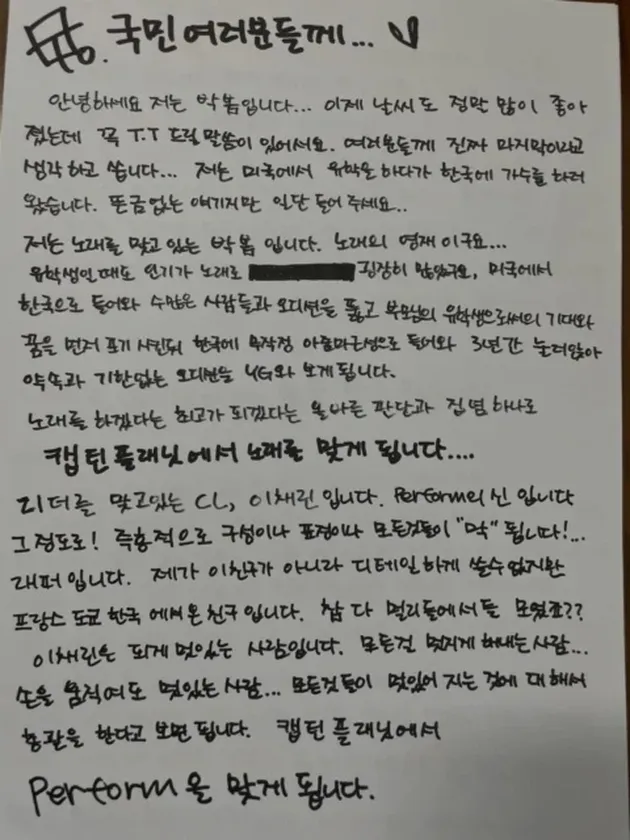 국민여러분들께...
안녕하세요 저는 박봄입니다... 이제 날씨도 정말 많이 좋아
졌는데 꼭 T.T 드릴말씀이 있어서요. 여러분들께 진짜 마지막이라고
생각하고 씁니다... 저는 미국에서 유학을 하다가 한국에 가수를 하러
왔습니다. 뜬금없는 얘기지만 일단 들어주세요..
저는 노래를 맞고있는 박봄 입니다. 노래의 영재이구요...
유학생인때도 인기가 노래로 굉장히 많았구요, 미국에서
한국으로 들어와 수많은 사람들과 오디션을 뚫고 부모님의 유학생으로써의 기대와
꿈을 먼저 포기 시킨뒤 한국에 무작정 아줌마근성으로 들어와 3년간 눌러앉아
약속과 기한없는 오디션을 YG와 보게됩니다.
노래를 하겠다는 최고가 되겠다는 올바른 판단과 집념 하나로
캡틴플래닛에서 노래를 맞게 됩니다....
리더를 맞고있는 CL, 이채린입니다. Perform의 신 입니다
그정도로! 즉흥적으로 구성이나 표정이나 모든것들이 "막" 됩니다!...
래퍼입니다. 제가 이친구가 아니라 디테일하게 쓸수없지만
프랑스 도쿄 한국 에서온친구입니다. 참 다 멀리들에서들 모였죠??
이채린은 되게 멋있는 사람입니다. 모든걸 멋지게 해내는사람...
손을 움직여도 멋있는사람... 모든것들이 멋있어 지는 것에 대해서
총괄을 한다고 보면 됩니다. 캡틴 플래닛에서
Perform을 맞게 됩니다.